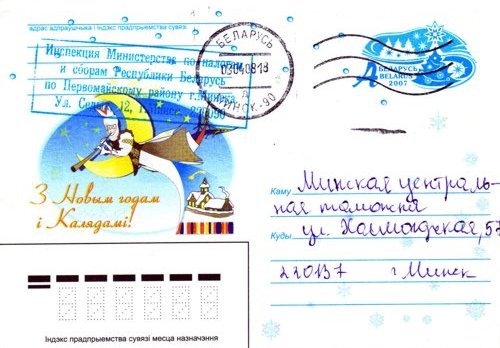 адрас адпраўшчыка і індэкс прадпрыемства сувязі
Инспекция Министерства по налогам
и сборам Республики Беларусь
по Первомайскому району г.Минска
Ул. 12,
БЕЛАРУСЬ
03.04.08-18
МИНСК-90
А БЕЛАРУСЬ
BELARUS
2007
З Новым годам
і Калядамі!
Каму Минская централь-
ная таможня
Куды ул. 57
220137 г. Минск
Індэкс прадпрыемства сувязі месца назначэння